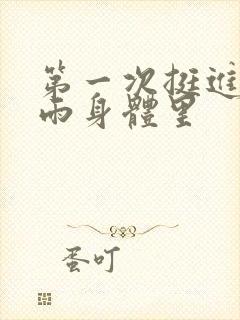 第一次挺進
雨身體里
蛋叮